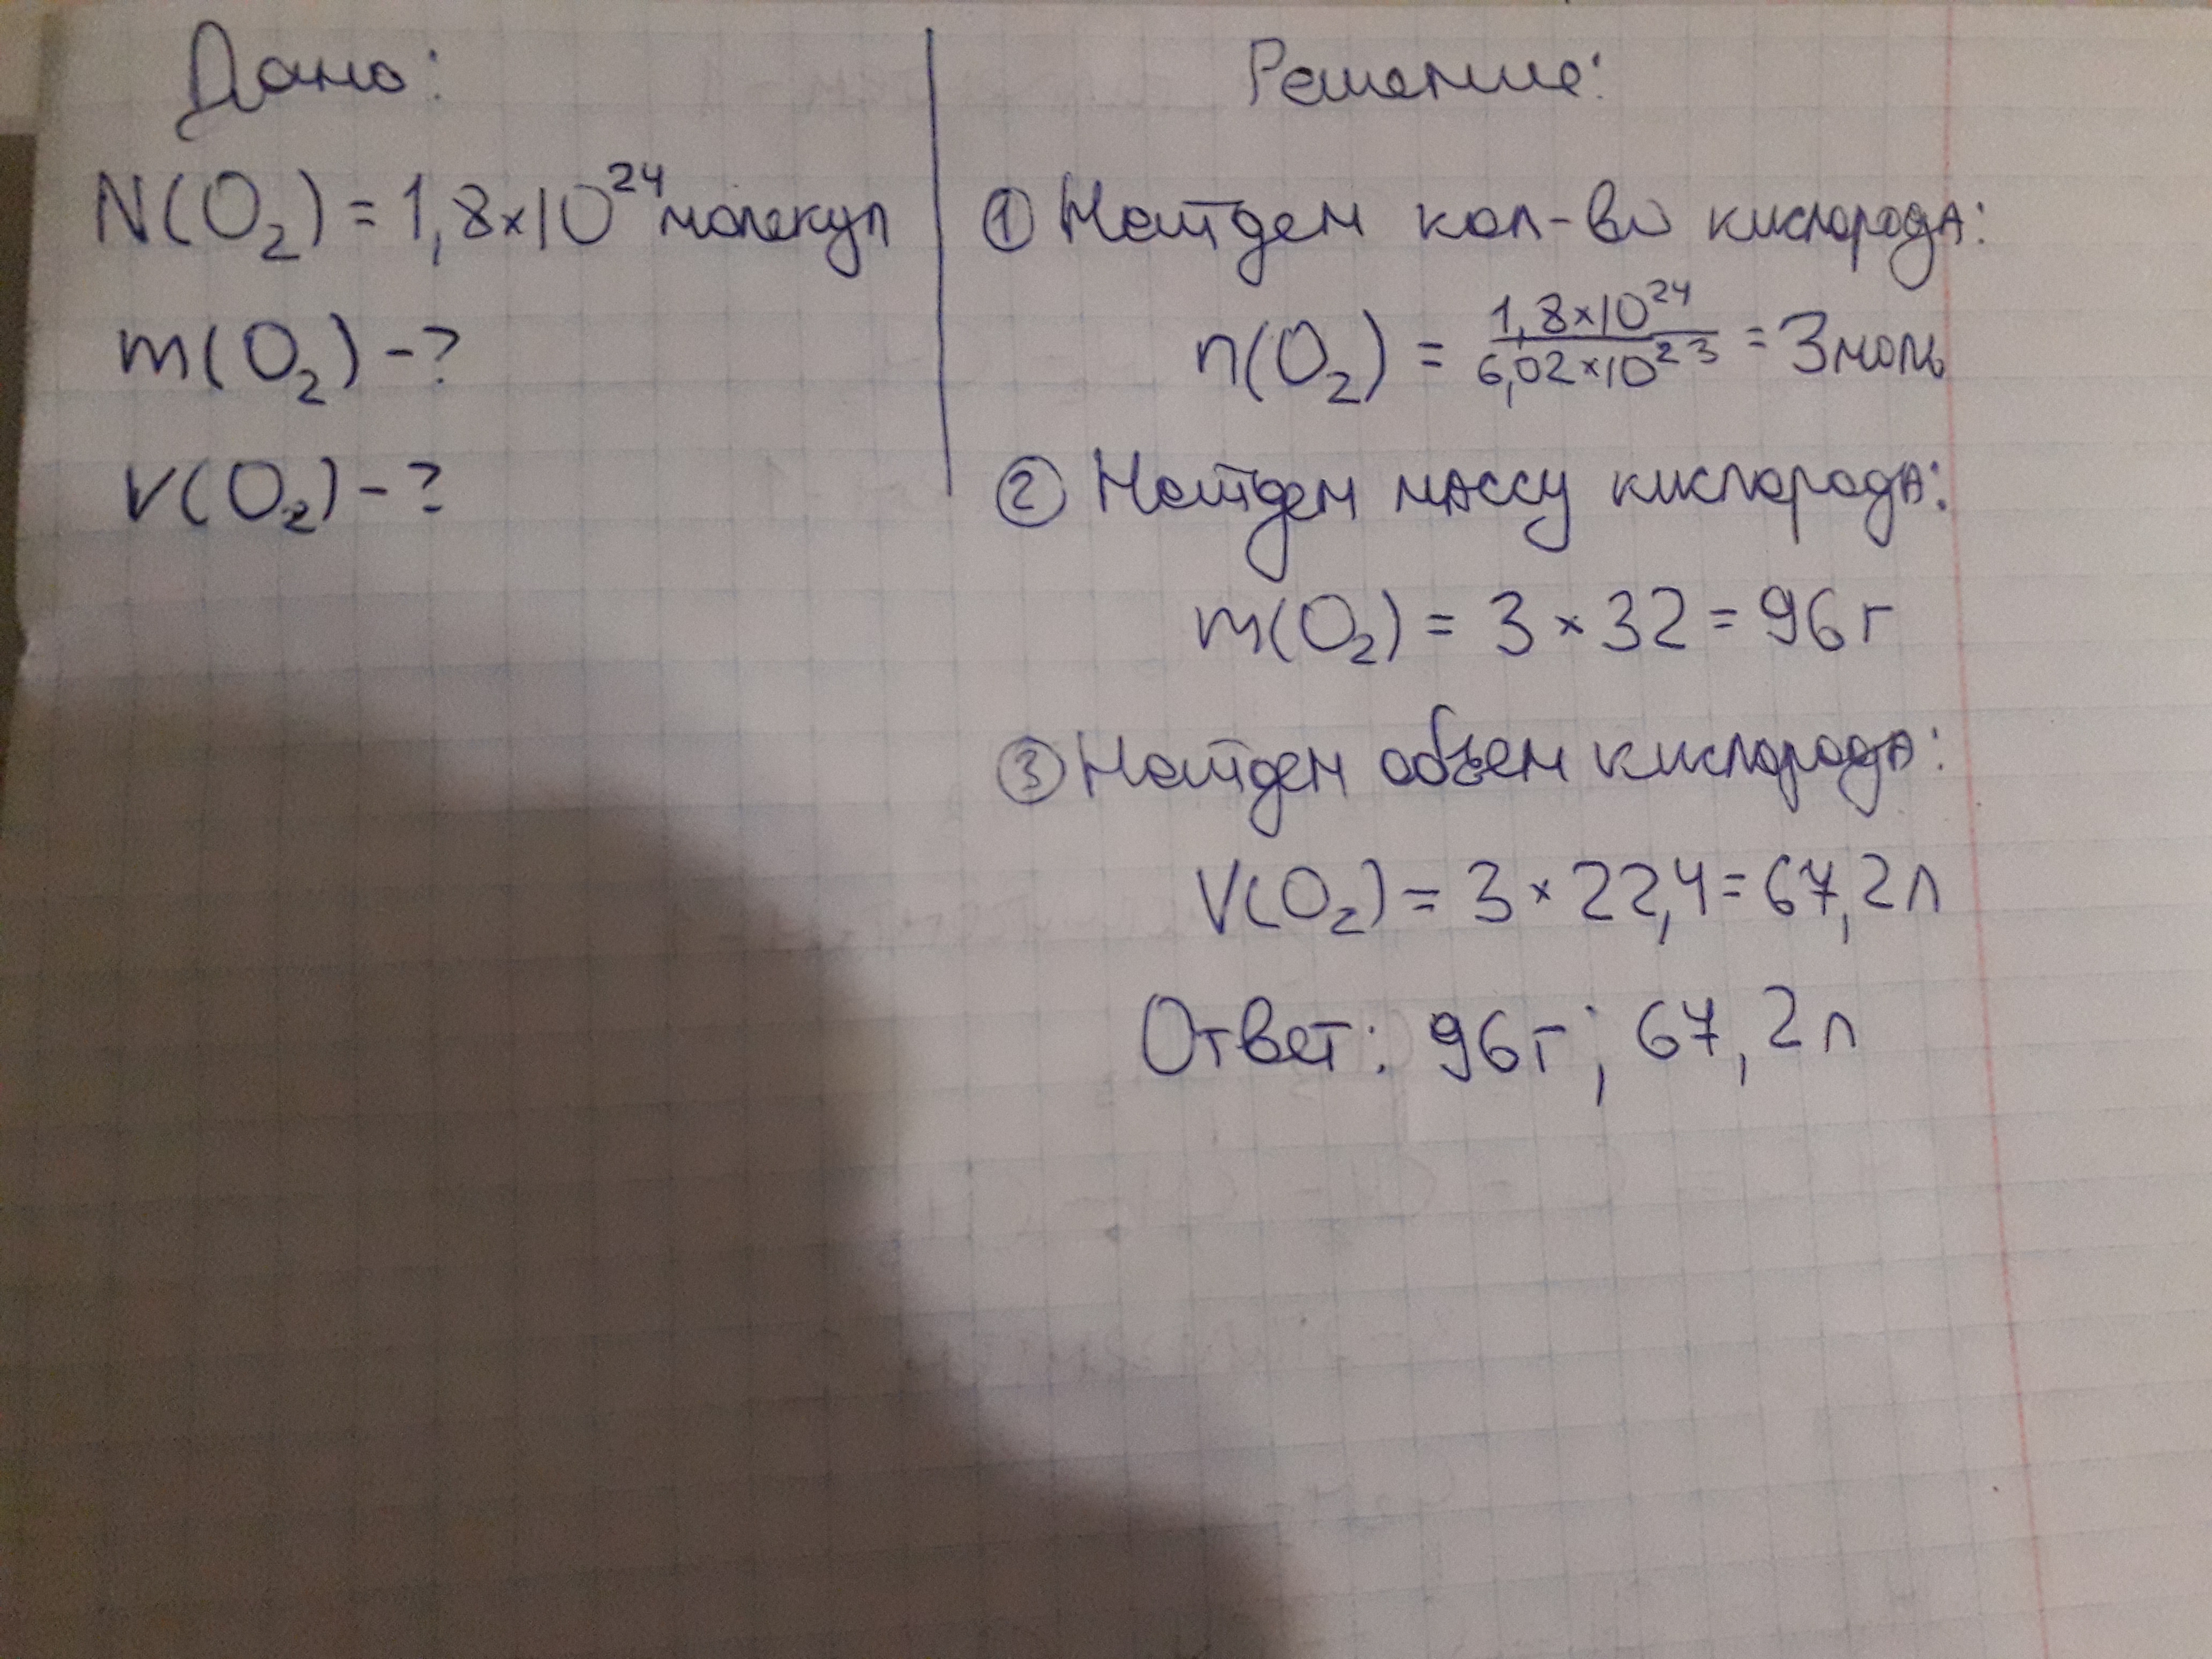 Дано:
N(O₂) = 1,8×10²⁴ молекул
m(O₂) - ?
V(O₂) - ?
Решение:
① Найдем кол-во кислорода:
n(O₂) = 1,8×10²⁴ / 6,02×10²³ = 3 моль
② Найдем массу кислорода:
m(O₂) = 3 × 32 = 96 г
③ Найдем объем кислорода:
V(O₂) = 3 × 22,4 = 67,2 л
Ответ: 96 г; 67,2 л